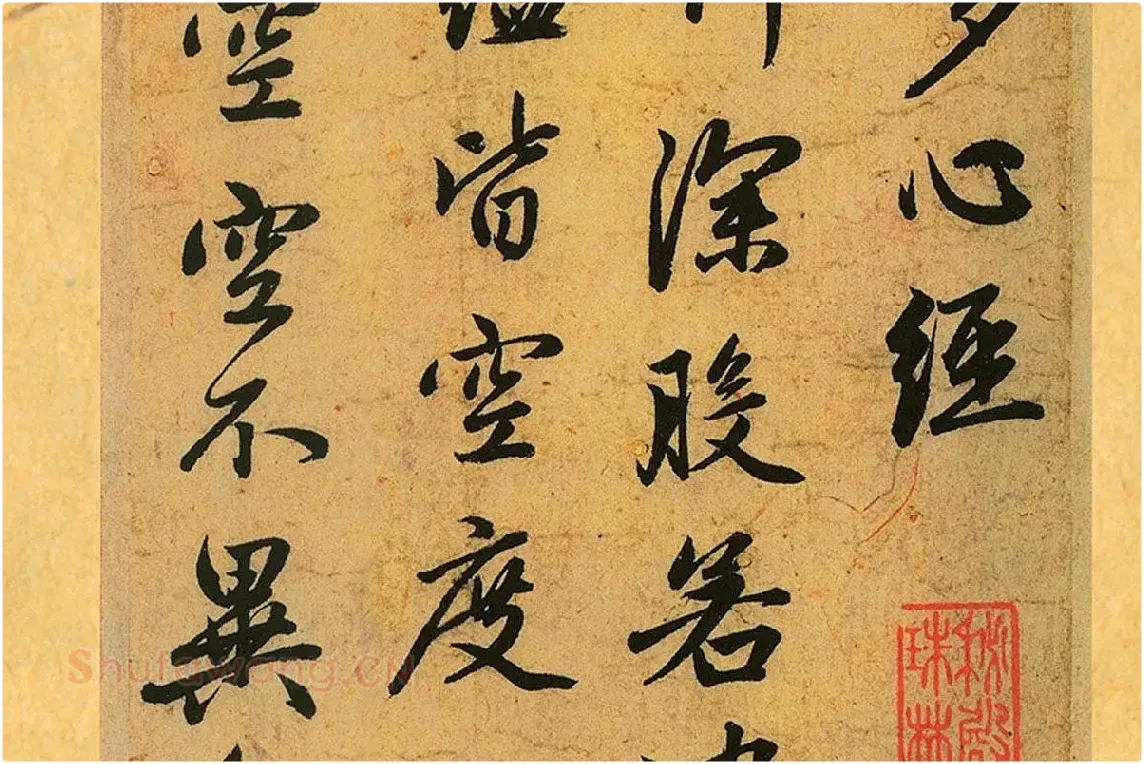 多心經
深般若
皆空度
空空不異
秘殿
珠林
Shufawang.cn